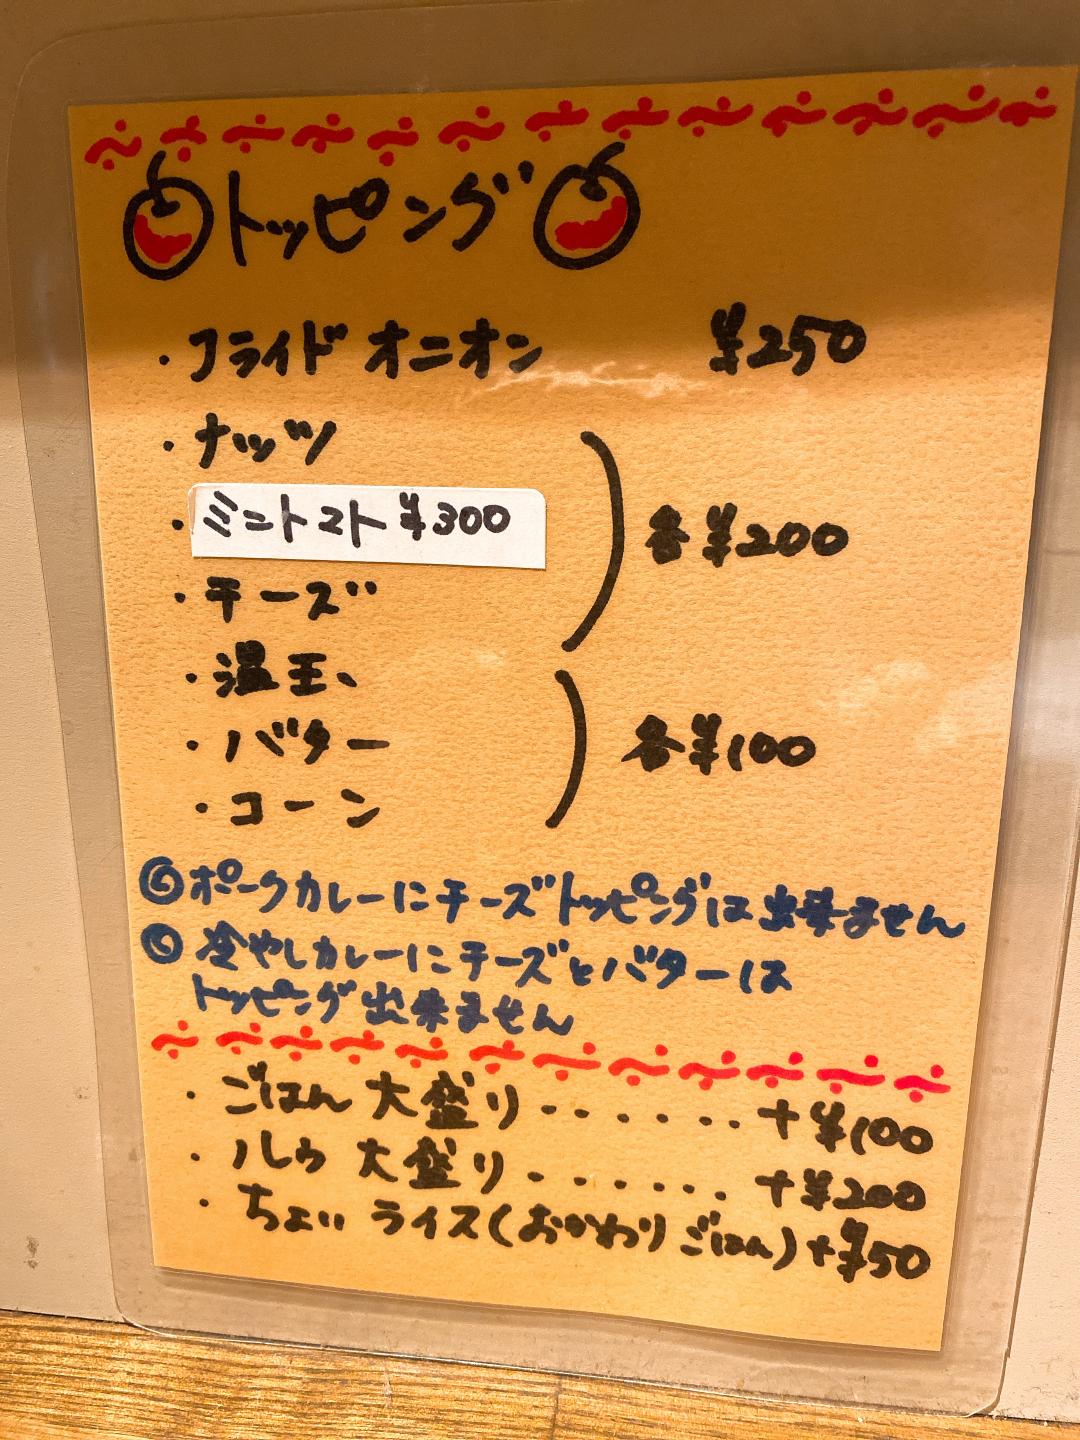 トッピング
・フライドオニオン ¥250
・ナッツ
・ミニトマト ¥300
各¥200
・チーズ
・温玉、
・バター
各¥100
・コーン
◎ポークカレーにチーズトッピングは出来ません
◎冷やしカレーにチーズとバターは
トッピング出来ません
・ごはん 大盛り・・・・・・+¥100
・ルゥ 大盛り・・・・・・+¥200
・ちょい ライス(おかわりごはん)+¥50